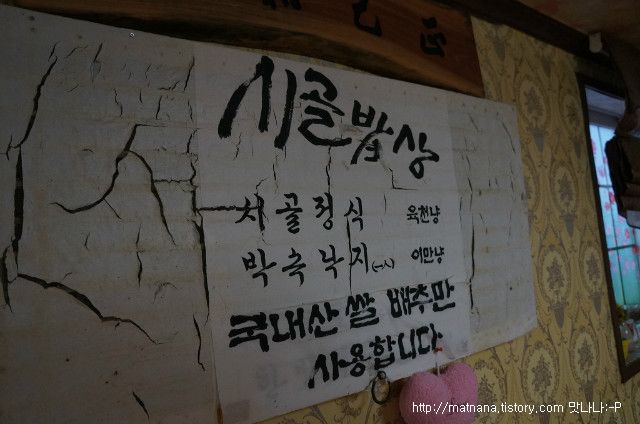 시골밥상
시골정식 육천냥
박속낙지 이만냥
국내산 쌀 배추만
사용합니다
http://matnana.tistory.com 맛나나:-P